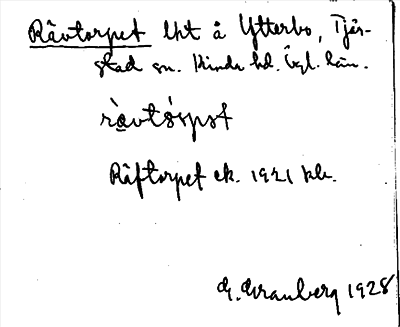 Råvtorpet lht å Ytterbo, Tjär-
stad sn. Kinda hd. Ögl. län.
Råftorpet ek. 1921 kbr.
G. Granberg 1928